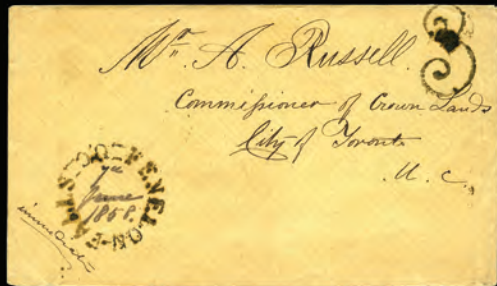 Mr. A. Russell.
Commissioner of Crown Lands
City of Toronto
U. C.
3
FENELON FALLS
June
1858.
immediate